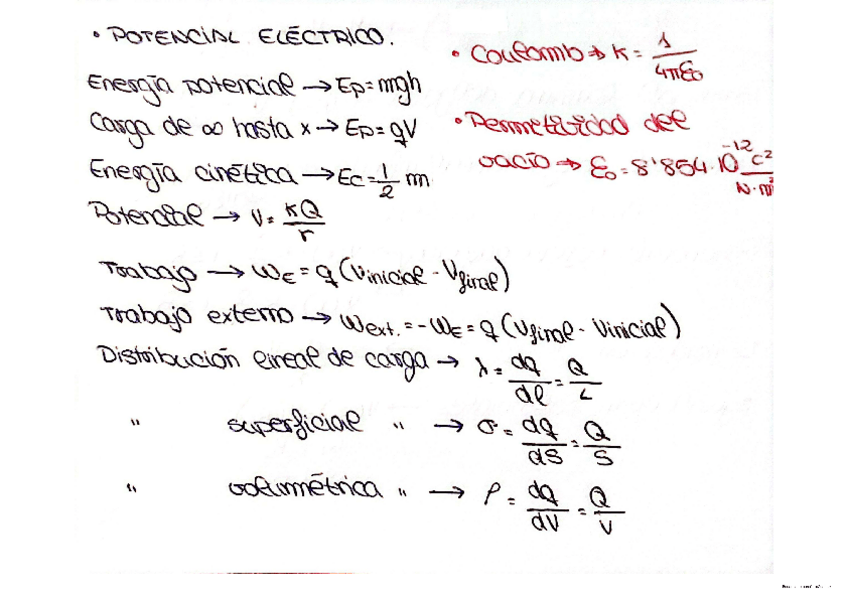 • POTENCIAL ELÉCTRICO.
Energía potencial → Ep = mgh
Carga de ∞ hasta x → Ep = qV
Energía cinética → Ec = 1/2 m
Potencial → V = KQ/r
Trabajo → WE = q (Vinicial - Vfinal)
Trabajo externo → Wext. = -WE = q (Vfinal - Vinicial)
Distribución lineal de carga → λ = dq/dl = Q/L
" superficial " → σ = dq/dS = Q/S
" volumétrica " → ρ = dq/dV = Q/V
• Coulomb → K = 1/4πε₀
• Permitividad del
vacío → ε₀ = 8'854·10⁻¹² C²/N·m²